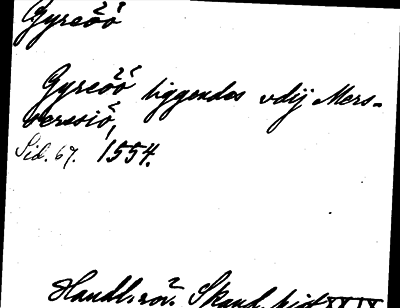 Gyreöö
Gyreöö liggendes vdij Mers-
veresiö,
Sid. 67. 1554.
Handl. rör. Skand. hist XXIX